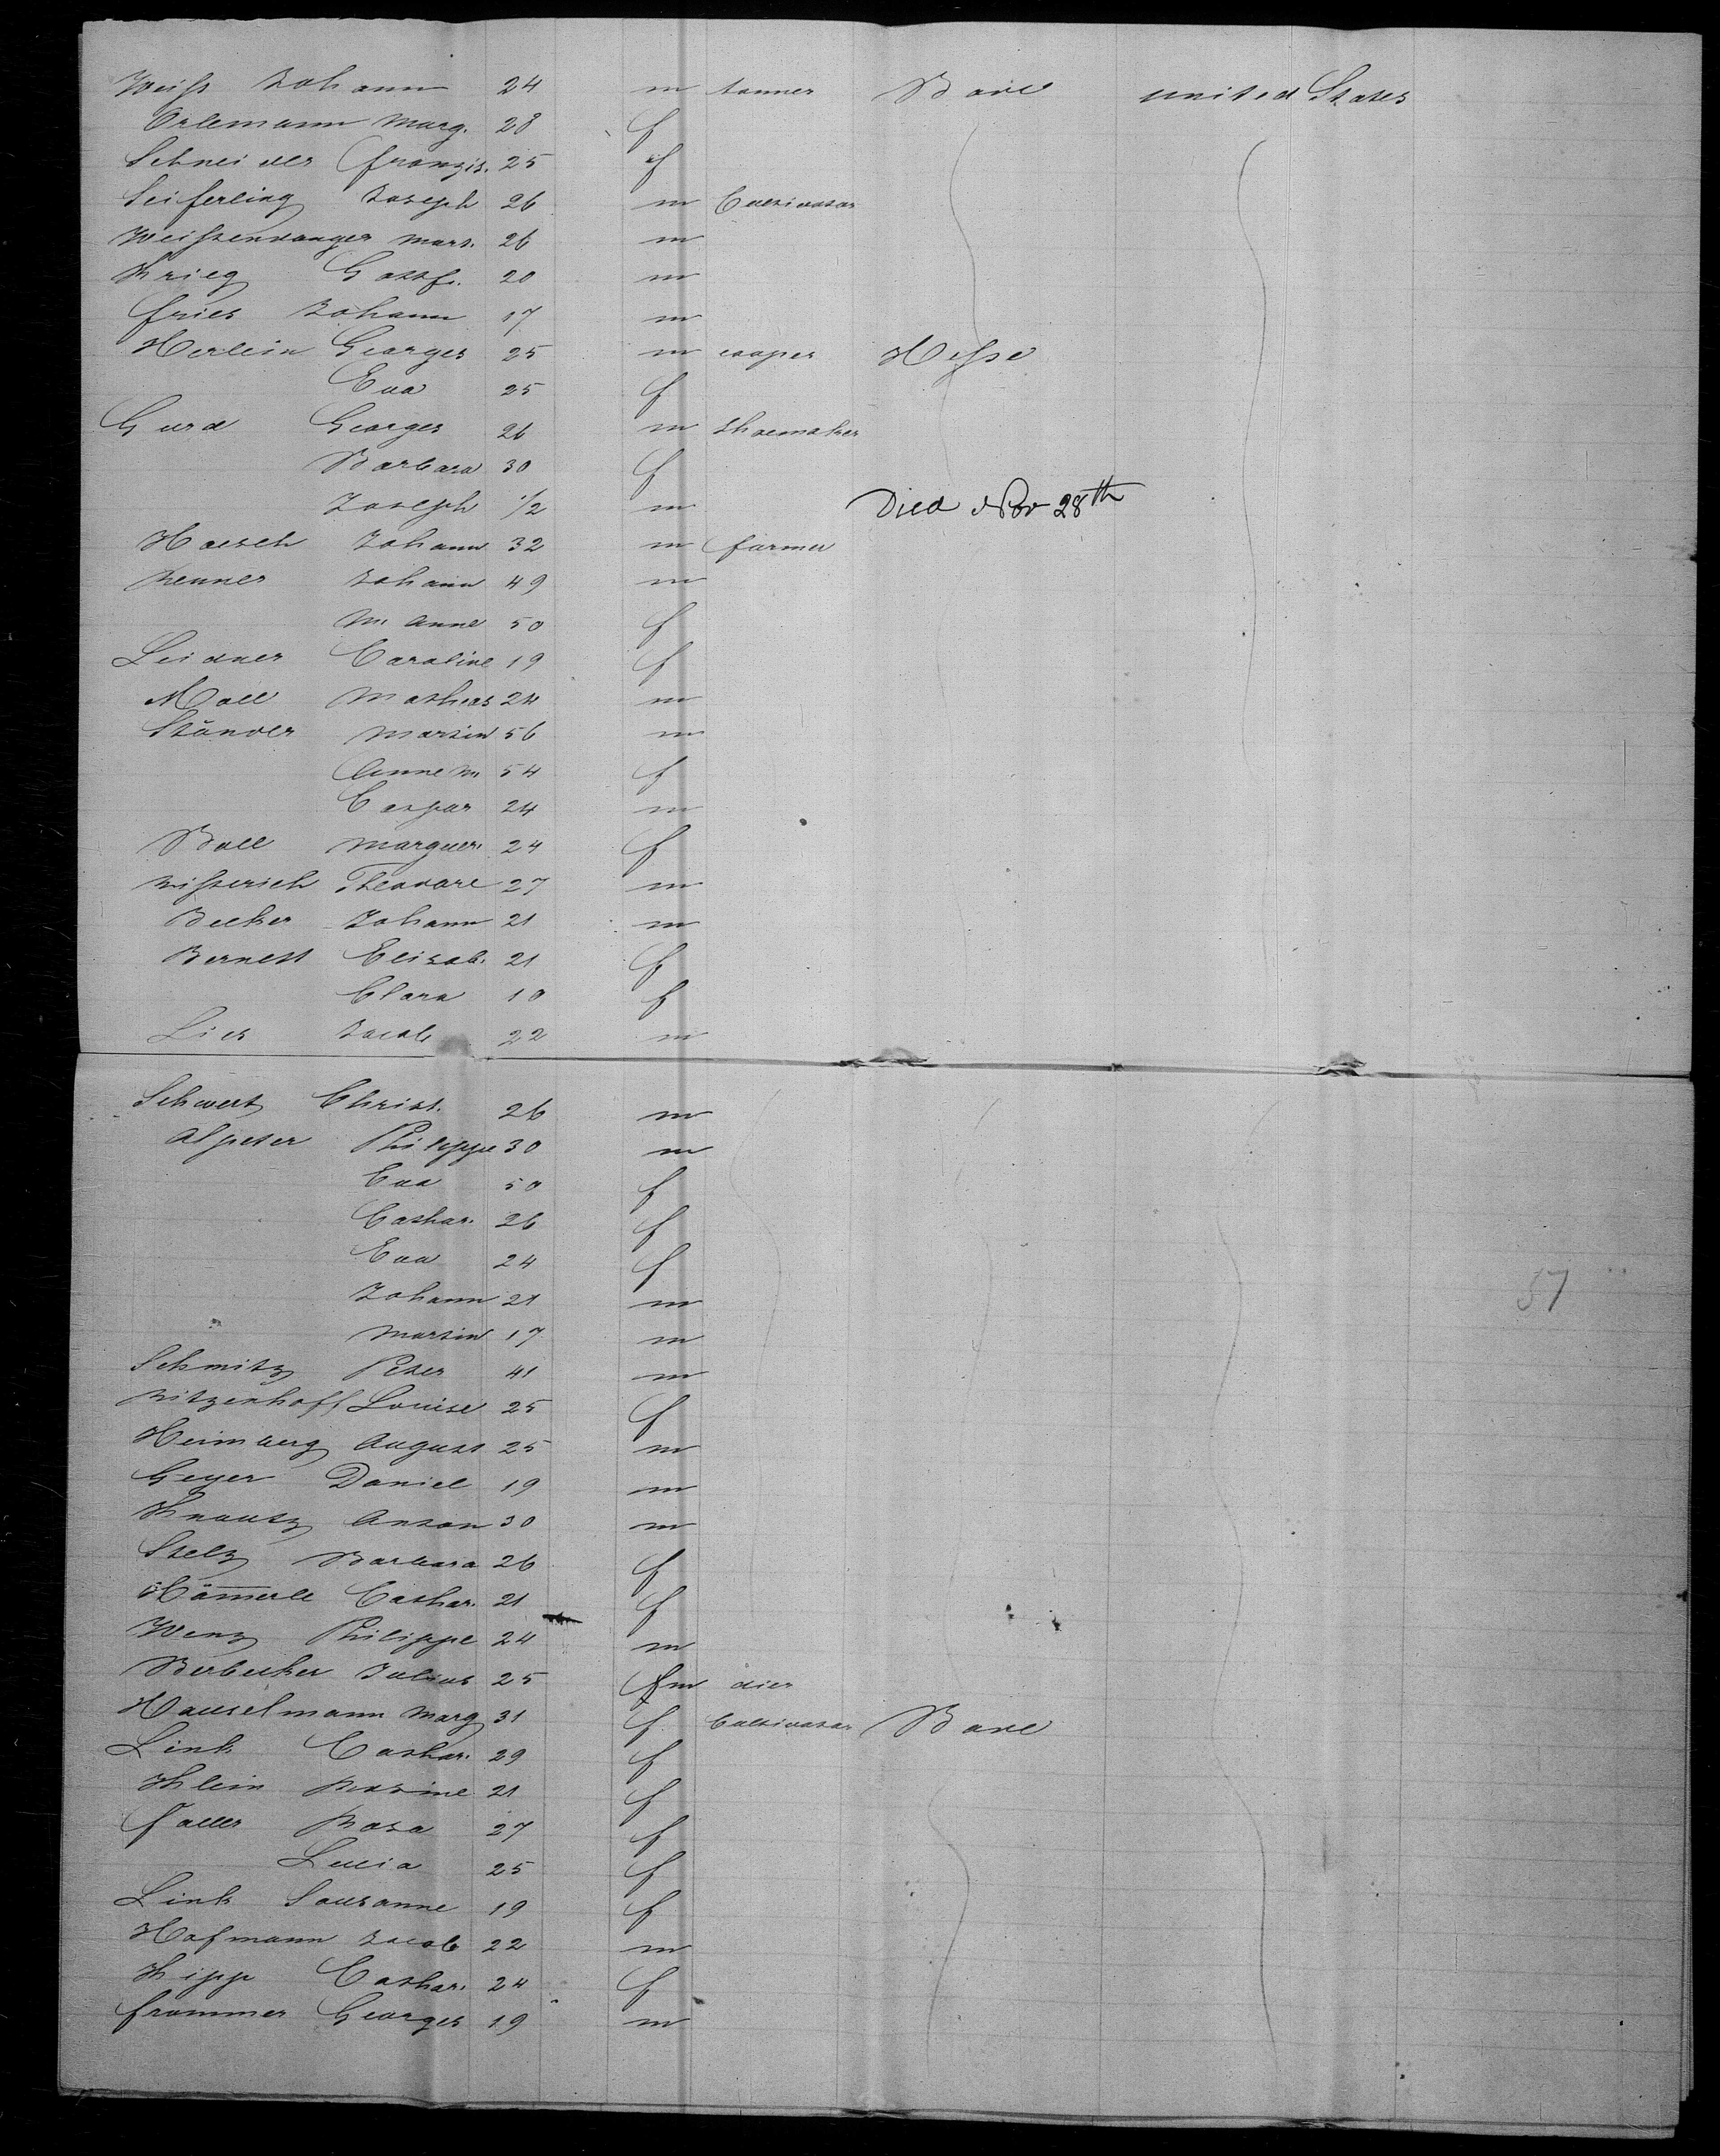 Weiss Johann 24 m tanner Bade united States
Orlemann Marg. 28 f
Schneider Franzis. 25 f
Seiferling Joseph 26 m Cultivator
Weissenvanger Mart. 26 m
Krieg Gottf. 20 m
Fries Johann 17 m
Herlein Georges 25 m cooper Hesse
Eva 25 f
Gurd Georges 26 m shoemaker
Barbara 30 f
Joseph 1/2 m Died Nov 28th
Haesch Johann 32 m farmer
Renner Johann 49 m
M Anne 50 f
Leidner Caroline 19 f
Moll Mathias 24 m
Ständer Martin 56 m
Anne M 54 f
Caspar 24 m
Boll Marguer. 24 f
Risterich Theodore 27 m
Becker Johann 21 m
Bernest Elisab. 21 f
Clara 10 f
Lies Jacob 22 m
Schwert Christ. 26 m
Alpeter Philippe 30 m
Eva 50 f
Cathar. 26 f
Eva 24 f
Johann 21 m
57
Martin 17 m
Schmitz Peter 41 m
Ritzenhoff Louise 25 f
Heimberg August 25 m
Geyer Daniel 19 m
Knautz Anton 30 m
Stelz Barbara 26 f
Hämerle Cathar. 21 f
Wenz Philippe 24 m
Berbecker Julius 25 m dier
Hauselmann Marg 31 f Cultivator Bade
Link Cathar. 29 f
Klein Rosine 21 f
Faller Rosa 27 f
Lucia 25 f
Link Sousanne 19 f
Hofmann Jacob 22 m
Kipp Cathar. 24 f
Frommer Georges 19 m